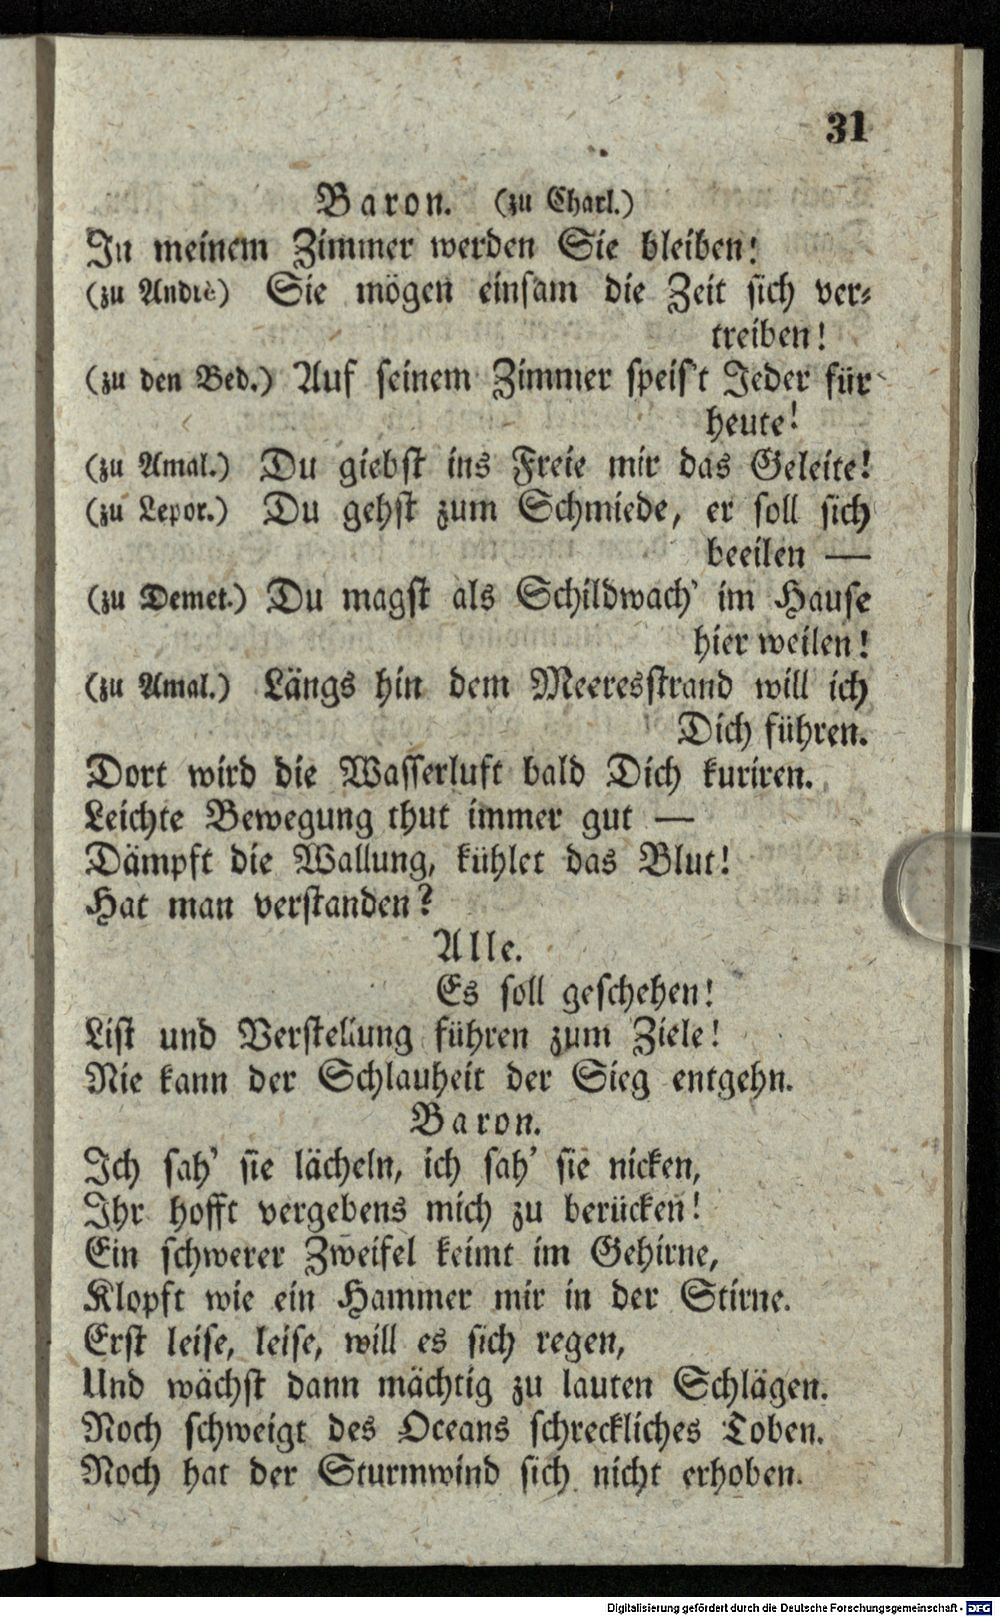 31
Baron. (zu Charl.)
In meinem Zimmer werden Sie bleiben!
(zu Andrè) Sie mögen einsam die Zeit sich ver-
treiben!
(zu den Bed.) Auf seinem Zimmer speis't Jeder für
heute!
(zu Amal.) Du giebst ins Freie mir das Geleite!
(zu Lepor.) Du gehst zum Schmiede, er soll sich
beeilen —
(zu Demet.) Du magst als Schildwach' im Hause
hier weilen!
(zu Amal.) Längs hin dem Meeresstrand will ich
Dich führen.
Dort wird die Wasserluft bald Dich kuriren.
Leichte Bewegung thut immer gut —
Dämpft die Wallung, kühlet das Blut!
Hat man verstanden?
Alle.
Es soll geschehen!
List und Verstellung führen zum Ziele!
Nie kann der Schlauheit der Sieg entgehn.
Baron.
Ich sah' sie lächeln, ich sah' sie nicken,
Ihr hofft vergebens mich zu berücken!
Ein schwerer Zweifel keimt im Gehirne,
Klopft wie ein Hammer mir in der Stirne.
Erst leise, leise, will es sich regen,
Und wächst dann mächtig zu lauten Schlägen.
Noch schweigt des Oceans schreckliches Toben.
Noch hat der Sturmwind sich nicht erhoben.
Digitalisierung gefördert durch die Deutsche Forschungsgemeinschaft - DFG